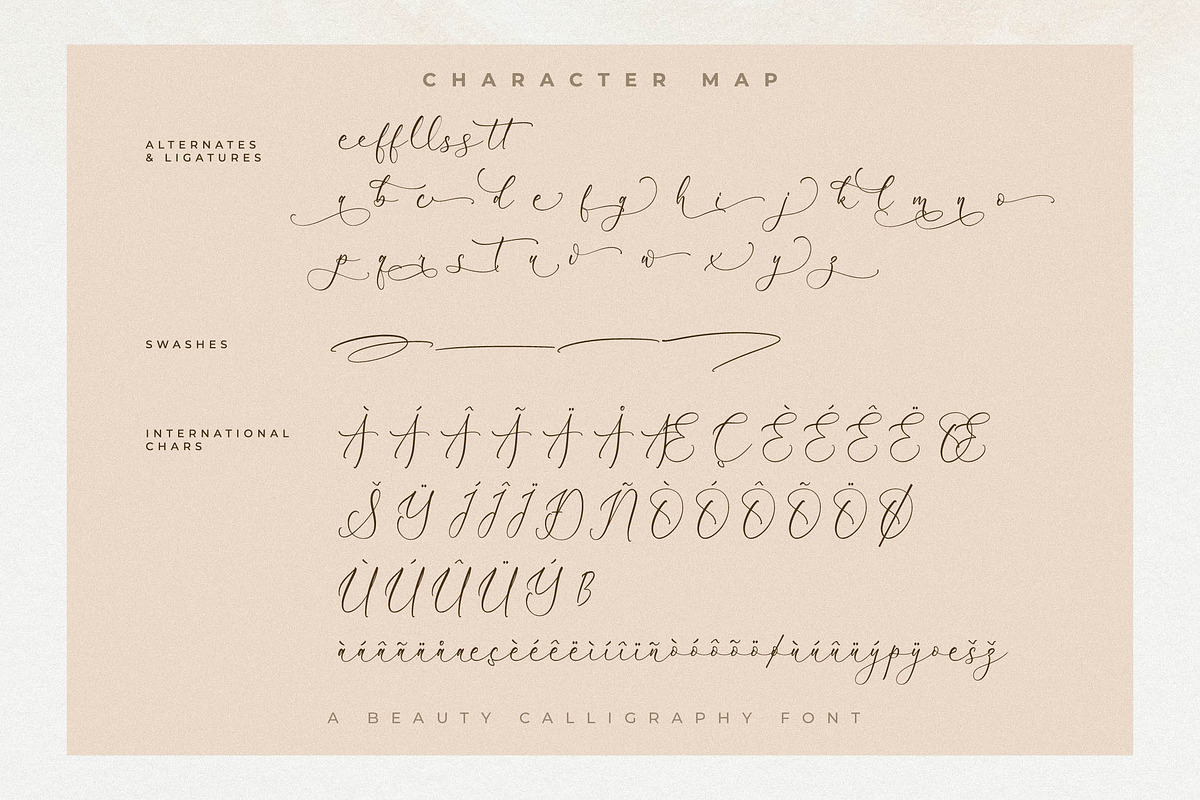 CHARACTER MAP
ALTERNATES
& LIGATURES
eeffllsstt
a b c d e f g h i j k l m n o
p q r s t u v w x y z
SWASHES
INTERNATIONAL
CHARS
ÀÁÂÃÄÅÆÇÈÉÊËŒ
ŠŸÍÎÏÐÑÒÓÔÕÖØ
ÙÚÛÜÝß
àáâãäåæçèéêëìíîïñòóôõöøùúûüýþÿœšž
A BEAUTY CALLIGRAPHY FONT